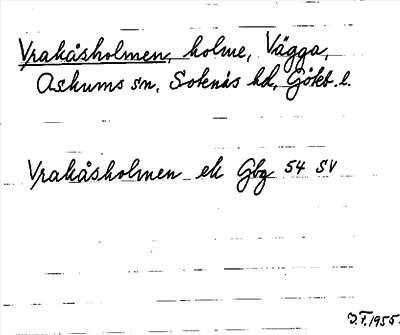 Vrakåsholmen, holme, Vägga,
Askums sn, Sotenäs hd, Göteb. l.
Vrakåsholmen ek Gbg 54 SV
J.T. 1955.